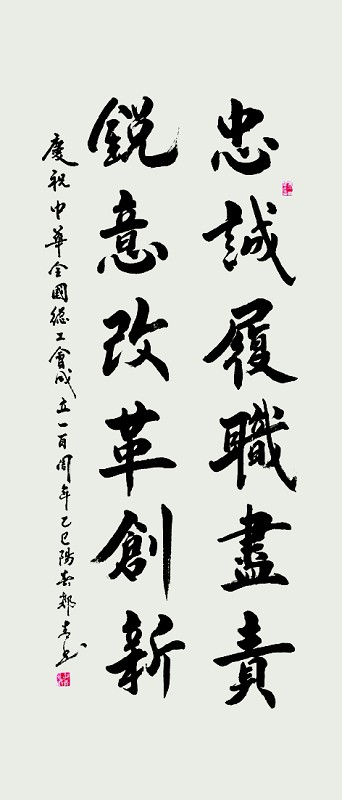 忠誠履職盡責
銳意改革創新
慶祝中華全國總工會成立一百周年乙巳陽春鄭